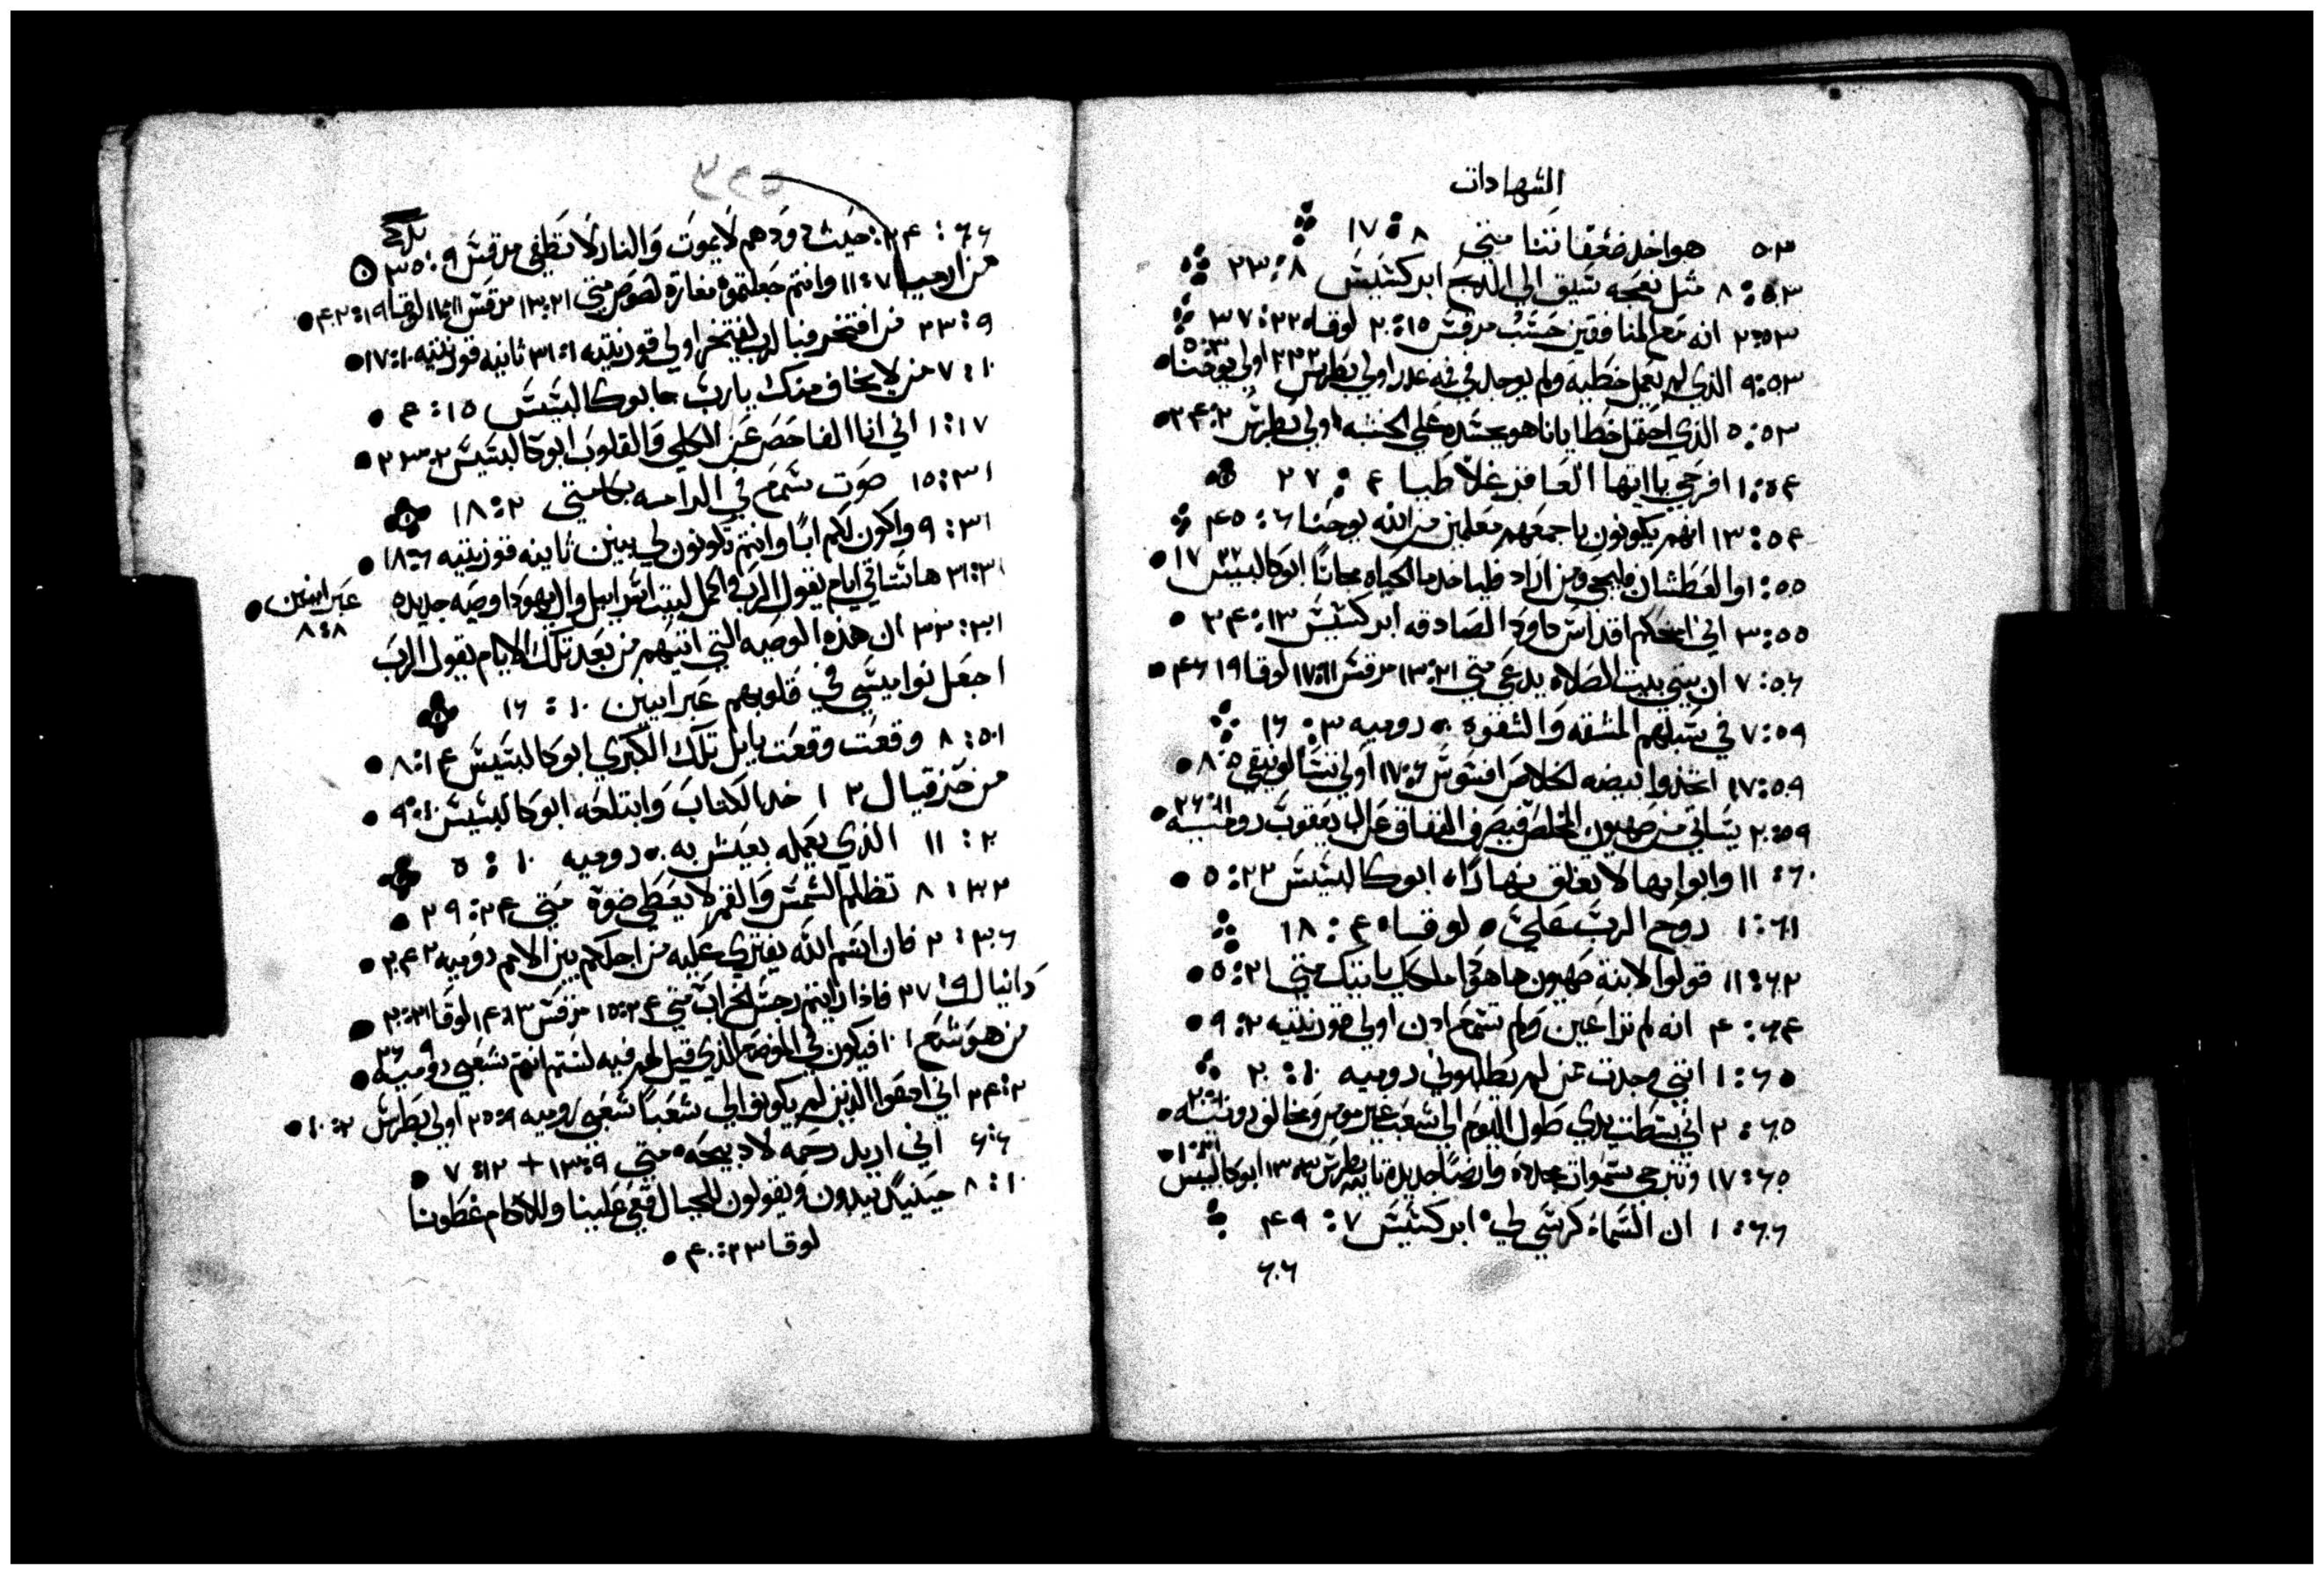 الشهادات
٥٣ هو اخد ضعفاتنا متي ٨ : ١٧
٥٣ : ٨ مثل نعجه سيق الي الدبح ابركسيس ٨ : ٢٣
٥٣ : ٢ انه مع المنافقين حسب مرقس ١٥ : ٢٠ لوقا ٢٢ : ٣٧
٥٣ : ٩ الذي لم يعمل خطية ولم يوجد في فمه غدر اولي بطرس ٢ ٢٢ اولي يوحنا ٣ : ٥
٥٣ : ٥ الذي احتمل خطايانا هو بجسده علي الخشبه اولي بطرس ٢ : ٢٤
٥٤ : ١ افرحي يا ايتها العاقر غلاطيا ٤ : ٢٧
٥٤ : ١٣ انهم يكونون باجمعهم معلمين من الله يوحنا ٦ : ٤٥
٥٥ : ١ والعطشان فليجي ومن اراد فلياخد ما الحياه مجانًا ابوكالبسيس ٢٢ ١٧
٥٥ : ٣ اني امنحكم اقداس داود الصادقه ابركسيس ١٣ : ٣٤
٥٦ : ٧ ان بيتي بيت الصلاه يدعي متي ٢١ : ١٣ مرقس ١١ : ١٧ لوقا ١٩ ٤٦
٥٩ : ٧ في سبلهم المشقه والشقوه رومية ٣ : ١٦
٥٩ : ١٧ اتخذوا بيضه الخلاص افسوس ٦ : ١٧ اولي تسالونيقي ٥ : ٨
٥٩ : ٢٠ ياتي من صهيون المخلص فيصرف النفاق عن ال يعقوب رومية ١١ : ٢٦
٦٠ : ١١ وابوابها لا يغلق نهارًا ابوكالبسيس ٢٢ : ٥
٦١ : ١ روح الرب علي لوقا ٤ : ١٨
٦٢ : ١١ قولوا لابنة صهيون ها هوذا ملكك ياتيك متي ٢١ : ٥
٦٤ : ٤ انه لم ترا عين ولم تسمع ادن اولي قورنتيه ٢ : ٩
٦٥ : ١ انني وجدت عن لم يطلبوني رومية ١٠ : ٢٠
٦٥ : ٢ اني بسطت يدي طول اليوم الي شعب غير مومن ومخالف رومية
٦٥ : ١٧ ونترجي سموات جددة وارضًا جديدة تانيه بطرس ٣ : ١٣ ابوكالبسيس ٢١ : ١
٦٦ : ١ ان السماء كرسي لي ابركسيس ٧ : ٤٩
٦٦
٣٢٥
٦٦ : ٢٤ : حيث دودهم لا يموت والنار لا تطفي مرقس ٩ : ٣٥
من ارميا ٧ : ١١ وانتم جعلتموه مغارة لصوص متي ٢١ : ١٣ مرقس ١١ : لوقا ١٩ : ٤٠٢
٩ : ٢٣ من افتخر فبالرب ليفتخر اولي قورنتيه ١ : ٣١ ثانيه قورنتيه ١٠ : ١٧
١٠ : ٧ من لا يخاف منك يا رب ابوكالبسيس ١٥ : ٤
١٧ : ١ اني انا الفاحص عن الكلي والقلوب ابوكالبسيس ٢ : ٢٣
٣١ : ١٥ صوت سمع في الرامه متي ٢ : ١٨
٣١ : ٩ واكون لكم ابًا وانتم تكونون لي بنين ثانيه قورنتيه ٦ : ١٨
٣١ : ٣١ ها ستاتي ايام يقول الرب واكمل لبيت اسراييل وال يهودا وصيه جديده عبرانيين ٨ : ٨
٣١ : ٣٣ ان هذه الوصيه التي اتيتهم من بعد تلك الايام يقول الرب
اجعل نواميسي في قلوبهم عبرانيين ١٠ : ١٦
٥١ : ٨ وقعت وقعت بابل تلك الكبري ابوكالبسيس ١٤ : ٨
من حزقيال ٣ ١ خد الكتاب وابتلعه ابوكالبسيس ١٠ : ٩
٢٠ : ١١ الذي يعمله يعيش به رومية ١٠ : ٥
٣٢ : ٨ تظلم الشمس والقمر لا يعطي ضوه متي ٢٤ : ٢٩
٣٦ : ٢ فان اسم الله يفتري عليه من اجلكم بين الامم رومية ٢ ٢٤
دانيال ٩ : ٢٧ فاذا رايتم رجس الخراب متي ٢٤ : ١٥ مرقس ١٣ : ١٤ لوقا ٢١ : ٢٠
من هوشع ١ ١٠ فيكون في الموضع الذي قيل لهم فيه لستم انتم شعبي رومية ٩ ٢٦
٢ : ٢٤ اني ادعوا الذين لم يكونوا لي شعبًا شعبي رومية ٩ : ٢٥ اولي بطرس ٢ : ١٠
٦ : ٦ اني اريد رحمه لا دبيحه متي ٩ : ١٣ + ١٢ : ٧
١٠ : ٨ حينيد يبدون ويقولون للجبال قعي علينا وللاكام غطونا
لوقا ٢٣ : ٤٠